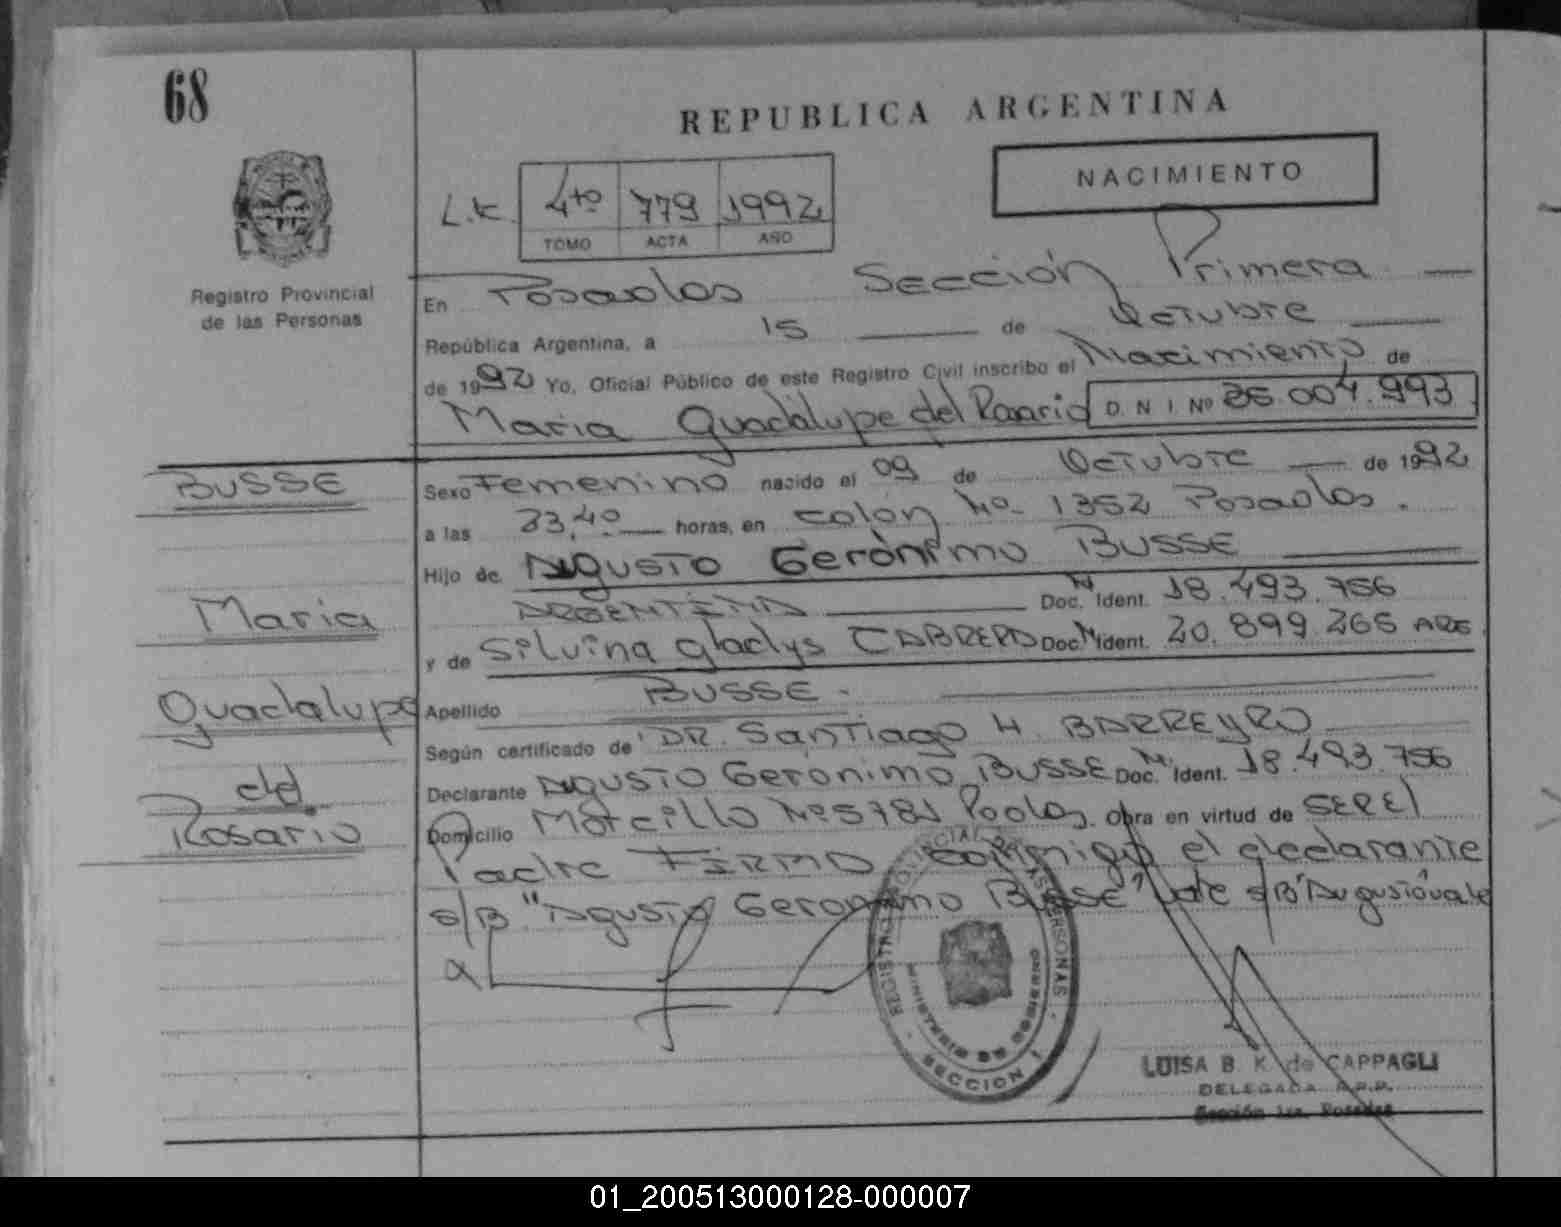 68
REPUBLICA ARGENTINA
NACIMIENTO
L.K. 4to 779 1992
TOMO ACTA AÑO
Registro Provincial
de las Personas
En Posadas Sección Primera
República Argentina, a 15 de Octubre
de 1992 Yo, Oficial Público de este Registro Civil inscribo el Nacimiento de
Maria Guadalupe del Rosario D. N. I. Nº 36.004.993
BUSSE
Sexo Femenino nacido el 09 de Octubre de 1992
a las 23,40 horas, en Colón Nº 1352 Posadas.
Hijo de AGUSTO Gerónimo BUSSE
Maria
ARGENTINA Doc. N Ident. 18.493.756
y de Silvina gladys CABRERA Doc. N Ident. 20.899.265 ARG.
Guadalupe
Apellido BUSSE.
Según certificado de DR. Santiago H. BARREYRO
del
Declarante AGUSTO Gerónimo BUSSE Doc. N Ident. 18.493.756
Rosario
Domicilio Nº 5781 Pdas. Obra en virtud de SER El
Padre FIRMA conmigo el declarante
s/B "AGUSTO Geronimo BUSSE" de s/B "Augusto" vale
REGISTRO PROVINCIAL DE LAS PERSONAS
MINISTERIO DE GOBIERNO
SECCION 1
LUISA B. K. de CAPPAGLI
DELEGADA R.P.P.
Sección 1ra. Posadas
01_200513000128-000007